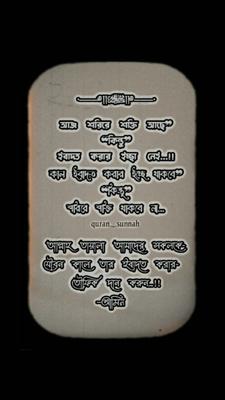 আজ শরিরে শক্তি আছে
"কিন্তু"
ইবাদত করার ইচ্ছা নেই...!!
কাল ইবাদত করার ইচ্ছে থাকবে
"কিন্তু"
শরিরে শক্তি থাকবে না...
quran_sunnah
আল্লাহ তায়ালা আমাদের সকলকে
যৌবন কালে তার ইবাদত করার
তৌফিক দান করুন..!!
-আমিন